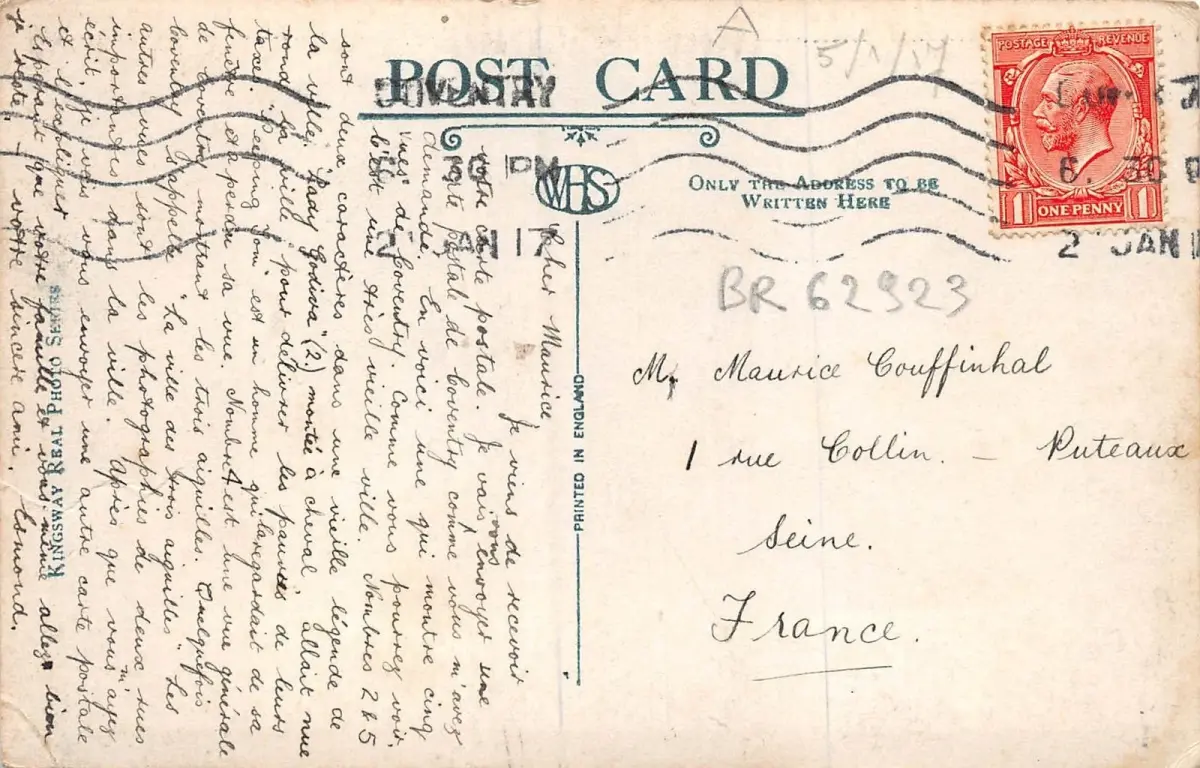 POST CARD
COVENTRY
6. 30 PM
2 JAN 17
WHS
ONLY THE ADDRESS TO BE
WRITTEN HERE
POSTAGE REVENUE
1 ONE PENNY 1
6. 30 P
2 JAN 1
A
5/1/17
BR 62923
M. Maurice Couffinhal
1 rue Collin. — Puteaux
Seine.
France.
PRINTED IN ENGLAND
KINGSWAY REAL PHOTO SERIES
Cher Maurice
Je viens de recevoir
votre carte postale. Je vais vous envoyer une
carte postale de Coventry comme vous m'avez
demandé. En voici une qui montre cinq
vues de Coventry. Comme vous pourrez voir,
c'est une très vieille ville. Nombres 2 & 5
sont deux caractères dans une vieille légende de
la ville. "Lady Godiva" (2) montée à cheval allait nue
rond la ville pour délivrer les pauvres de leurs
taxes. "Peeping Tom" est un homme qui la regardait de sa
fenêtre et a perdu sa vue. Nombre 4 est une vue générale
de Coventry montrant les trois aiguilles. Quelquefois
Coventry s'appelle "La ville des trois aiguilles". Les
autres vues sont les photographies de deux rues
importantes dans la ville. Après que vous m'ayez
écrit, je vais vous envoyer une autre carte postale
et l'expliquer
Espérant que votre famille et vous-même allez bien
je reste votre sincère ami. Esmond.